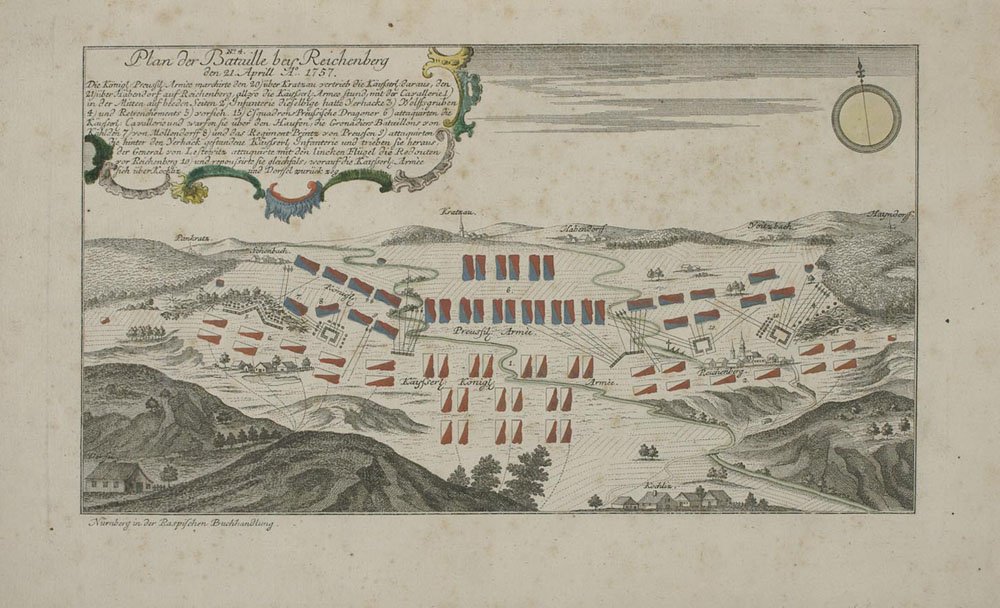 No. 4.
Plan der Bataille bey Reichenberg
den 21. Aprill Ao. 1757.
Die Königl. Preussl. Armée marchirte den 20 über Kratzau vertrieb die Kaÿsserl. daraus, den
21 über Habendorf auf Reichenberg, allwo die Kaÿsserl. Armee stund, mit der Cavallerie 1)
in der Mitten auf beeden Seiten 2) Infanterie dieselbige hatte Verhacke 3) Wolffsgruben
4) und Retrenchements 5) vor sich. 15 Esquadrons Preussische Dragoner 6) attaquirten die
Kaÿsserl. Cavallerie und warfen sie über den Haufen, die Grenadiers Bataillons von
Kahlden 7) von Möllendorff 8) und das Regiment Printz von Preussen 9) attaquirten
die hinter den Verhack gestandene Kaÿsserl. Infanterie und trieben sie heraus
der General von Lestewitz attaquirte mit den lincken Flügel die Redouten
vor Reichenberg 10) und repoussirte sie gleichfals, worauf die Kaÿsserl. Armée
sich über Kochliz und Dorfel zurück zog.
Kratzau.
Habendorf
Voitzbach
Haindorff
Pankratz
Schönbach
Preussil. Armée
Reichenberg
Kaÿsserl. Königl. Armée.
Kochliz.
Nürnberg in der Raspischen Buchhandlung